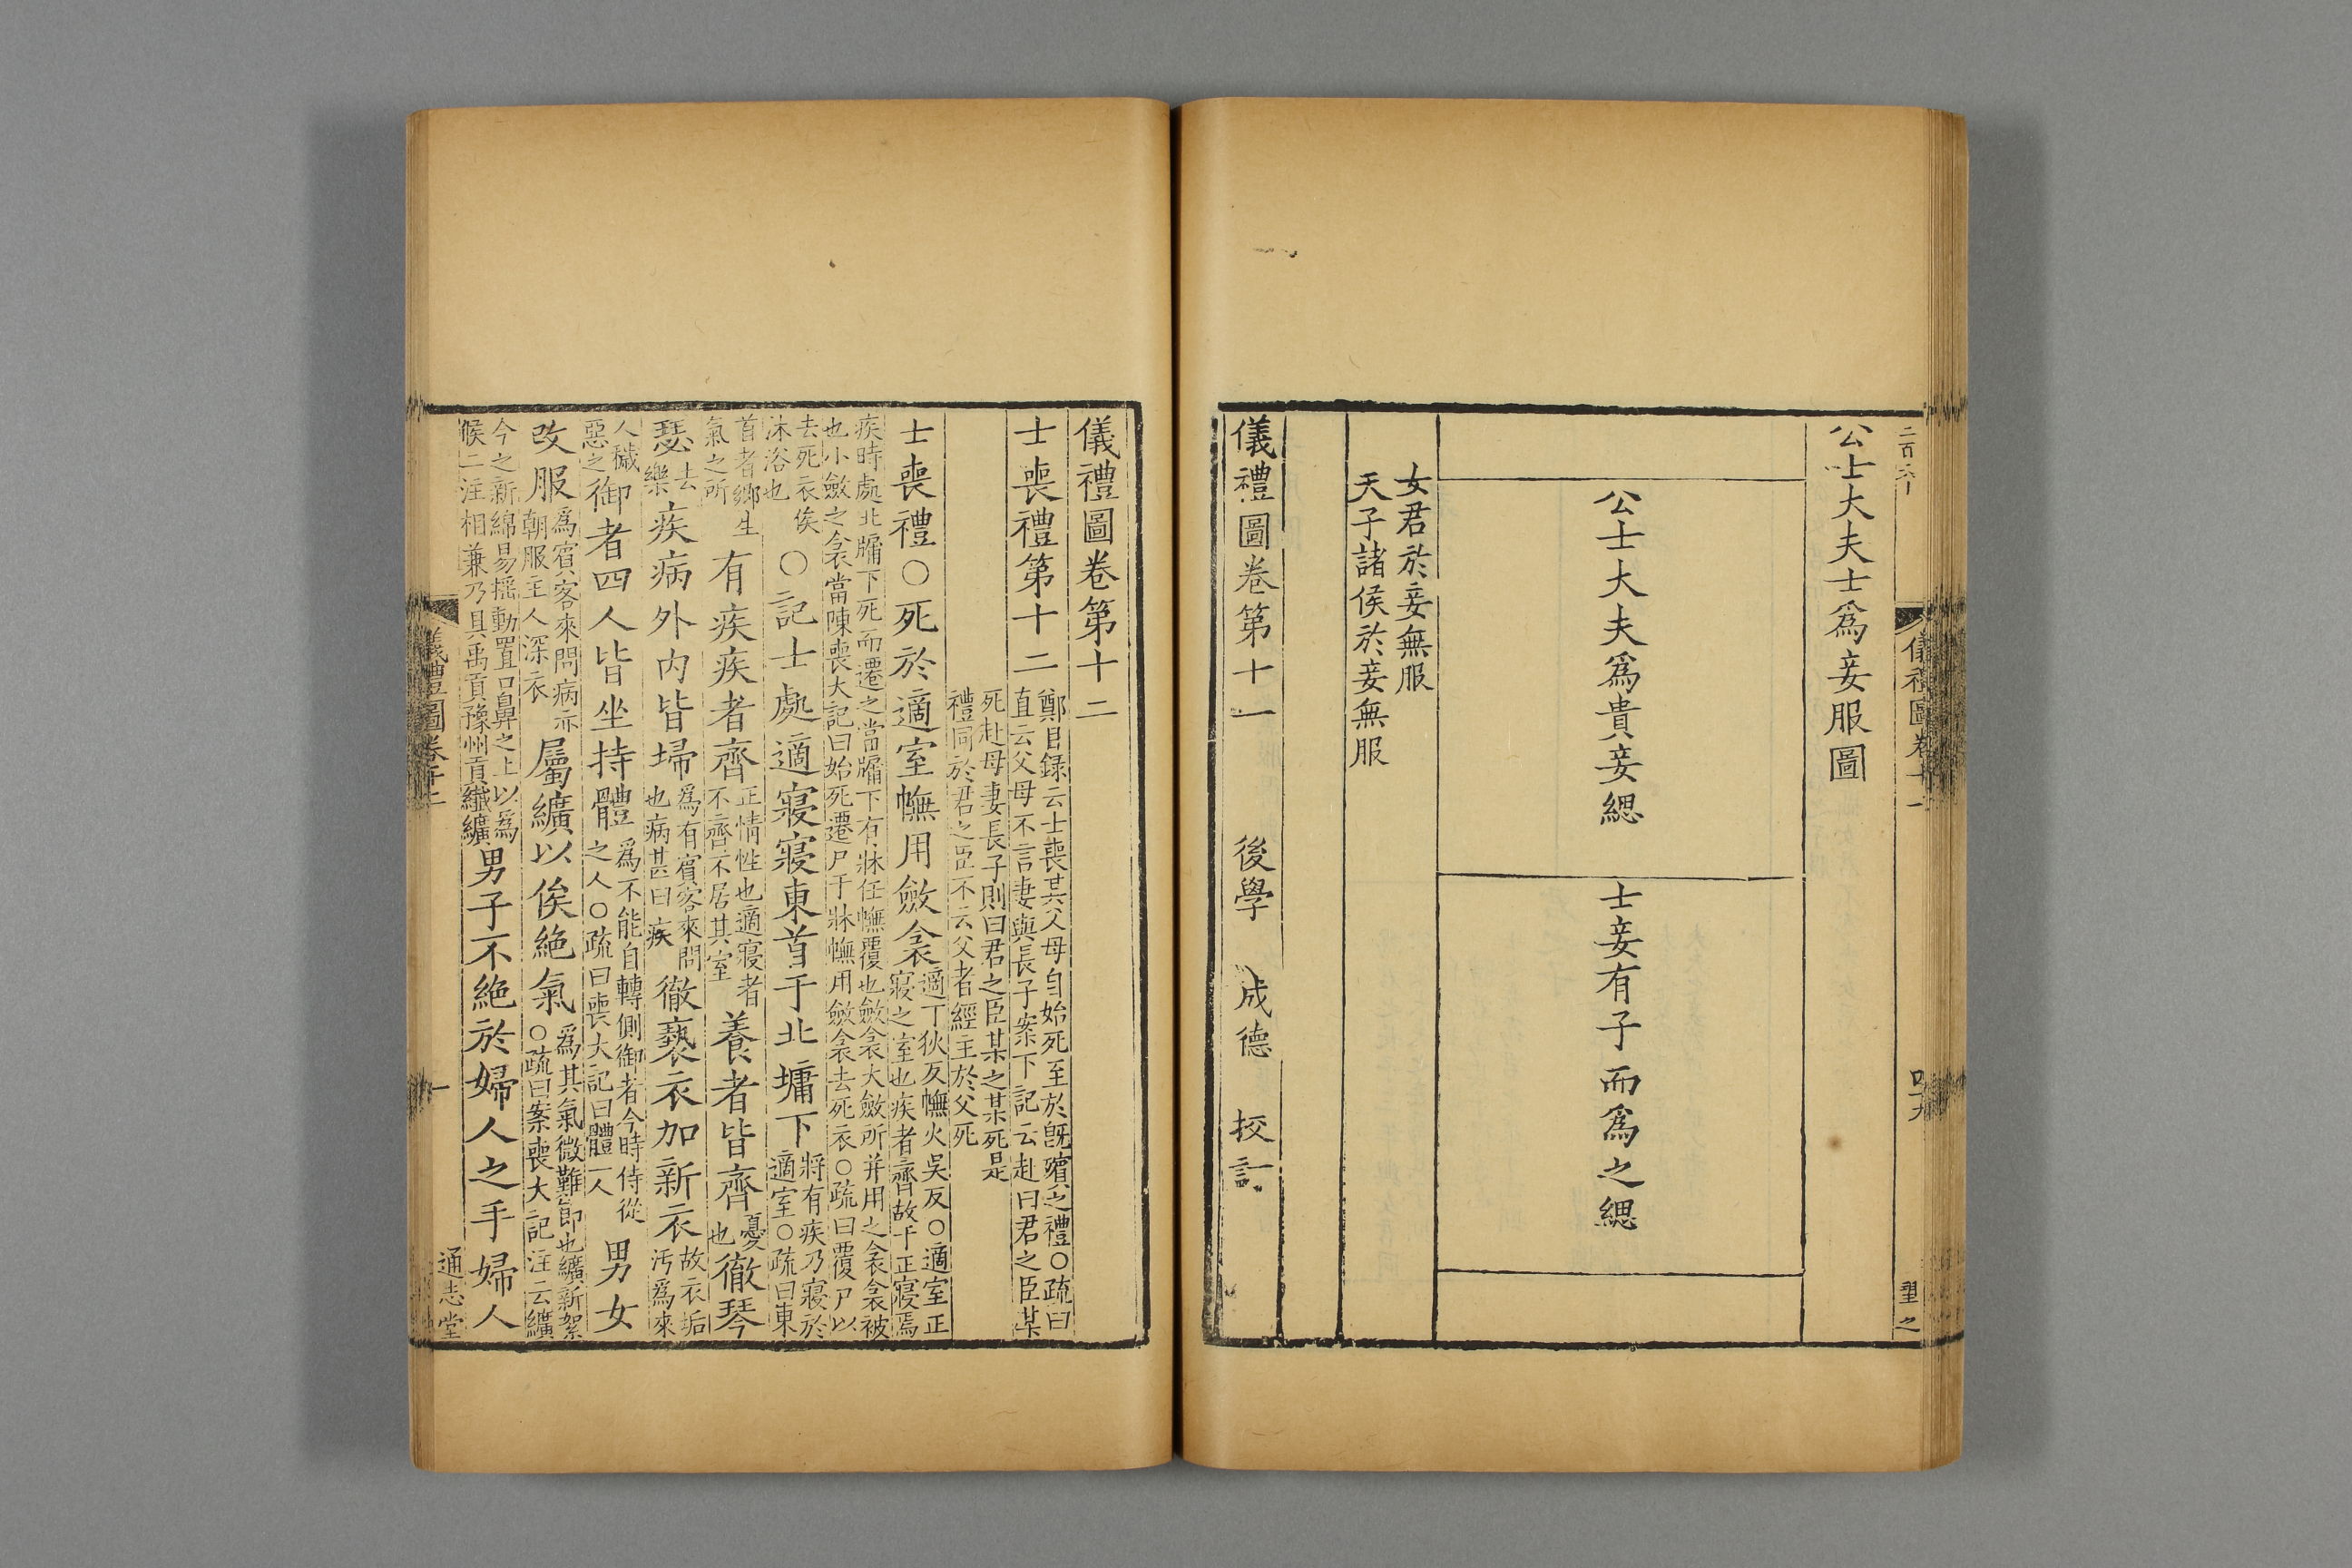 公士大夫士爲妾服圖
公士大夫爲貴妾緦
士妾有子而爲之緦
女君於妾無服
天子諸侯於妾無服
儀禮圖卷第十一 後學 成德 校訂
儀禮圖卷第十二
士喪禮第十二
鄭目録云士喪其父母自始死至於旣殯之禮○疏曰
直云父母不言妻與長子案下記云赴曰君之臣某
死赴母妻長子則曰君之臣某之某死是
禮同於君之臣不云父者經主於父死
士喪禮○死於適室幠用斂衾
適丁狄反幠火吳反○適室正
寢之室也疾者齊故于正寢焉
疾時處北牖下死而遷之當牖下有牀衽幠覆也斂衾大斂所并用之衾衾被
也小斂之衾當陳喪大記曰始死遷尸于牀幠用斂衾去死衣○疏曰覆尸以
去死衣俟
沐浴也
○記士處適寢寢東首于北墉下
將有疾乃寢於
適室○疏曰東
首者鄉生
氣之所
有疾疾者齊
正情性也適寢者
不齊不居其室
養者皆齊
憂
也
徹琴
瑟
去
樂
疾病外內皆埽
爲有賓客來問
也病甚曰疾
徹褻衣加新衣
故衣垢
汚爲來
人穢
惡之
御者四人皆坐持體
爲不能自轉側御者今時侍從
之人○疏曰喪大記曰體一人
男女
改服
爲賓客來問病亦
朝服主人深衣
屬纊以俟絶氣
爲其氣微難節也纊新絮
○疏曰案喪大記注云纊
今之新綿易揺動置口鼻之上以爲
候二注相兼乃具禹貢豫州貢纖纊
男子不絶於婦人之手婦人
儀禮圖卷十二
一
通志堂